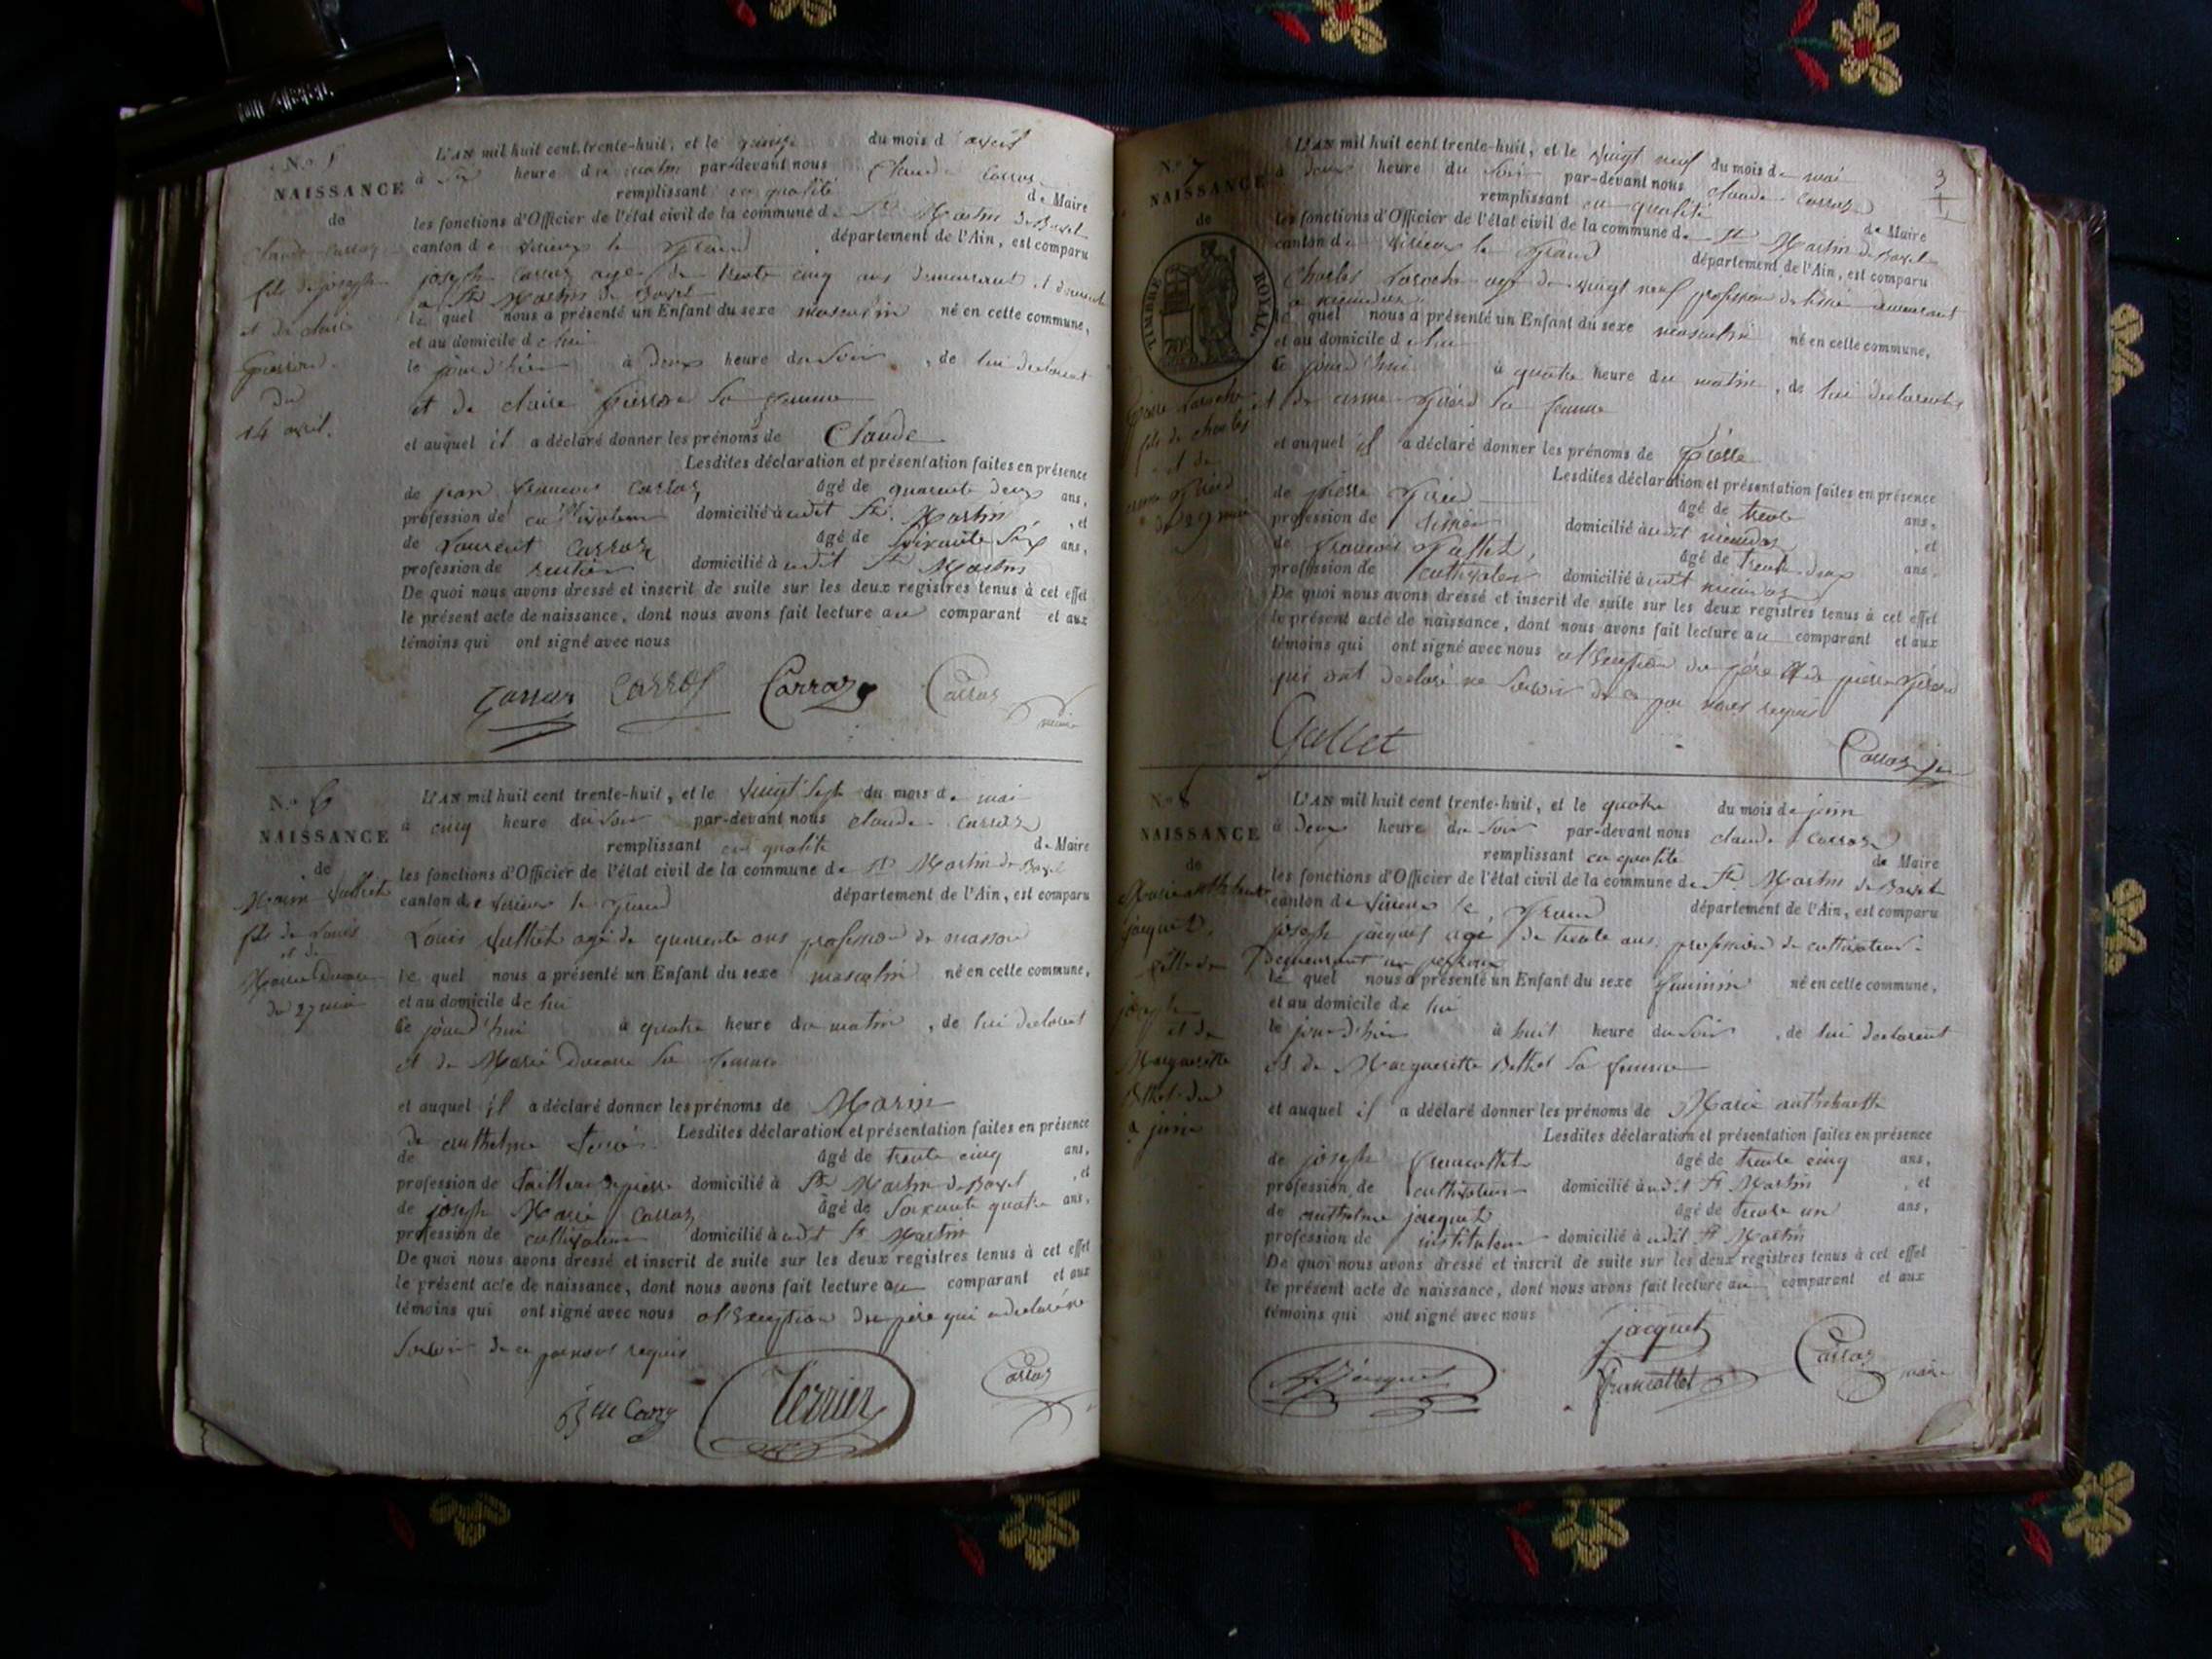 N.o 5
NAISSANCE
de
Claude Carraz
fils de joseph
et de claire
du
14 avril.
L'AN mil huit cent trente-huit, et le quinze du mois d'avril
à six heure du matin par-devant nous Claude Carraz
remplissant en qualité de Maire
les fonctions d'Officier de l'état civil de la commune de St Martin de Bavel
canton de virieux le Grand département de l'Ain, est comparu
joseph Carraz agé de trente cinq ans demeurant
a St Martin de Bavel
le quel nous a présenté un Enfant du sexe masculin né en cette commune,
et au domicile de lui
le jour d'hier à deux heure du soir, de lui declarant
et de claire sa femme
et auquel il a déclaré donner les prénoms de Claude
Lesdites déclaration et présentation faites en présence
de jean francois Carraz âgé de quarente deux ans,
profession de cultivateur domicilié à udit St. Martin, et
de Laurent Carraz âgé de soixante six ans,
profession de rentier domicilié à udit St Martin
De quoi nous avons dressé et inscrit de suite sur les deux registres tenus à cet effet
le présent acte de naissance, dont nous avons fait lecture au comparant et aux
témoins qui ont signé avec nous
Carraz Carraz Carraz
maire
N.o 6
NAISSANCE
de
Marin Vuillet
fils de Louis
et de
Marie Ducarre
du 27 mai
L'AN mil huit cent trente-huit, et le vingt sept du mois de mai
à cinq heure du soir par-devant nous claude Carraz
remplissant en qualité de Maire
les fonctions d'Officier de l'état civil de la commune de St Martin de Bavel
canton de virieux le Grand département de l'Ain, est comparu
Louis agé de quarente ans profession de masson
le quel nous a présenté un Enfant du sexe masculin né en cette commune,
et au domicile de lui
ce jourd'hui à quatre heure du matin, de lui declarant
et de Marie Ducarre sa femme
et auquel il a déclaré donner les prénoms de Marin
Lesdites déclaration et présentation faites en présence
de anthelme âgé de trente cinq ans,
profession de tailleur de pierre domicilié à St Martin de Bavel, et
de joseph Marie Carraz âgé de soixante quatre ans,
profession de cultivateur domicilié à udit St Martin
De quoi nous avons dressé et inscrit de suite sur les deux registres tenus à cet effet
le présent acte de naissance, dont nous avons fait lecture au comparant et aux
témoins qui ont signé avec nous a l'exception du père qui a declaré ne
savoir de ce par nous requis
Terrier Carraz
N.o 7
NAISSANCE
de
TIMBRE ROYAL
Pierre Laroche
fils de charles
et de
du 29 mai
3
L'AN mil huit cent trente-huit, et le vingt neuf du mois de mai
à deux heure du soir par-devant nous claude Carraz
remplissant en qualité de Maire
les fonctions d'Officier de l'état civil de la commune de St Martin de Bavel
canton de virieux le Grand département de l'Ain, est comparu
Charles Laroche agé de vingt neuf profession de demeurant
a
le quel nous a présenté un Enfant du sexe masculin né en cette commune,
et au domicile de lui
ce jourd'hui à quatre heure du matin, de lui declarant
et de anne sa femme
et auquel il a déclaré donner les prénoms de Pierre
Lesdites déclaration et présentation faites en présence
de pierre âgé de trente ans,
profession de domicilié à udit, et
de francois Gallet, âgé de trente deux ans,
profession de cultivateur domicilié à udit
De quoi nous avons dressé et inscrit de suite sur les deux registres tenus à cet effet
le présent acte de naissance, dont nous avons fait lecture au comparant et aux
témoins qui ont signé avec nous a l'exception du père et de pierre
qui ont declaré ne savoir de ce par nous requis
Gallet Carraz
N.o 8
NAISSANCE
de
jacquet
fille de
joseph
et de
Marguerite
Bethet du
juin
L'AN mil huit cent trente-huit, et le quatre du mois de juin
à deux heure du soir par-devant nous claude Carraz
remplissant en qualité de Maire
les fonctions d'Officier de l'état civil de la commune de St Martin de Bavel
canton de virieux le Grand département de l'Ain, est comparu
joseph jacquet agé de trente ans, profession de cultivateur
demeurant
le quel nous a présenté un Enfant du sexe feminin né en cette commune,
et au domicile de lui
le jour d'hier à huit heure du soir, de lui declarant
et de Marguerite Bethet sa femme
et auquel il a déclaré donner les prénoms de Marie
Lesdites déclaration et présentation faites en présence
de joseph francottet âgé de trente cinq ans,
profession de cultivateur domicilié à udit St Martin, et
de anthelme jacquet âgé de trente un ans,
profession de instituteur domicilié à udit St Martin
De quoi nous avons dressé et inscrit de suite sur les deux registres tenus à cet effet
le présent acte de naissance, dont nous avons fait lecture au comparant et aux
témoins qui ont signé avec nous
jacquet
A. Jacquet francottet Carraz maire